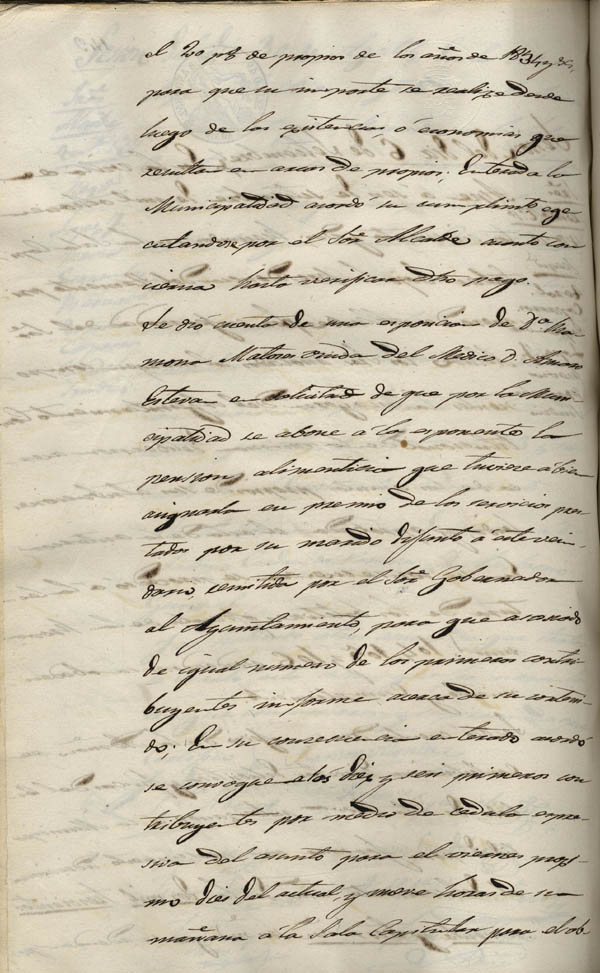 el 20 p% de propios de los años de 1834 y 35,
para que su importe se realize desde
luego de las existencias ó economias que
resultan en arcas de propios; Enterada la
Municipalidad acordó su cumplimto ege
cutandose por el Sor Alcalde cuanto con
cierna hasta verificar dho pago.
Se dió cuenta de una esposicion de Da Ra
mona Matoses viuda del Medico D. Amaro
Esteva en solicitud de que por la Muni
cipalidad se abone á la esponente la
pension alimenticia que tuviere a bien
asignarla en premio de los servicios pres
tados por su marido difunto á este vecin-
dario, remitida por el Sor Gobernador
al Ayuntamiento, para que asociado
de igual numero de los primeros contri
buyentes informe acerca de su conteni-
do; En su consecuencia enterado acordó
se convoque a los diez y seis primeros con
tribuyentes por medio de cedula espre
siva del asunto para el viernes procsi-
mo dies del actual, y nueve horas de su
mañana a la Sala Capitular para el ob-